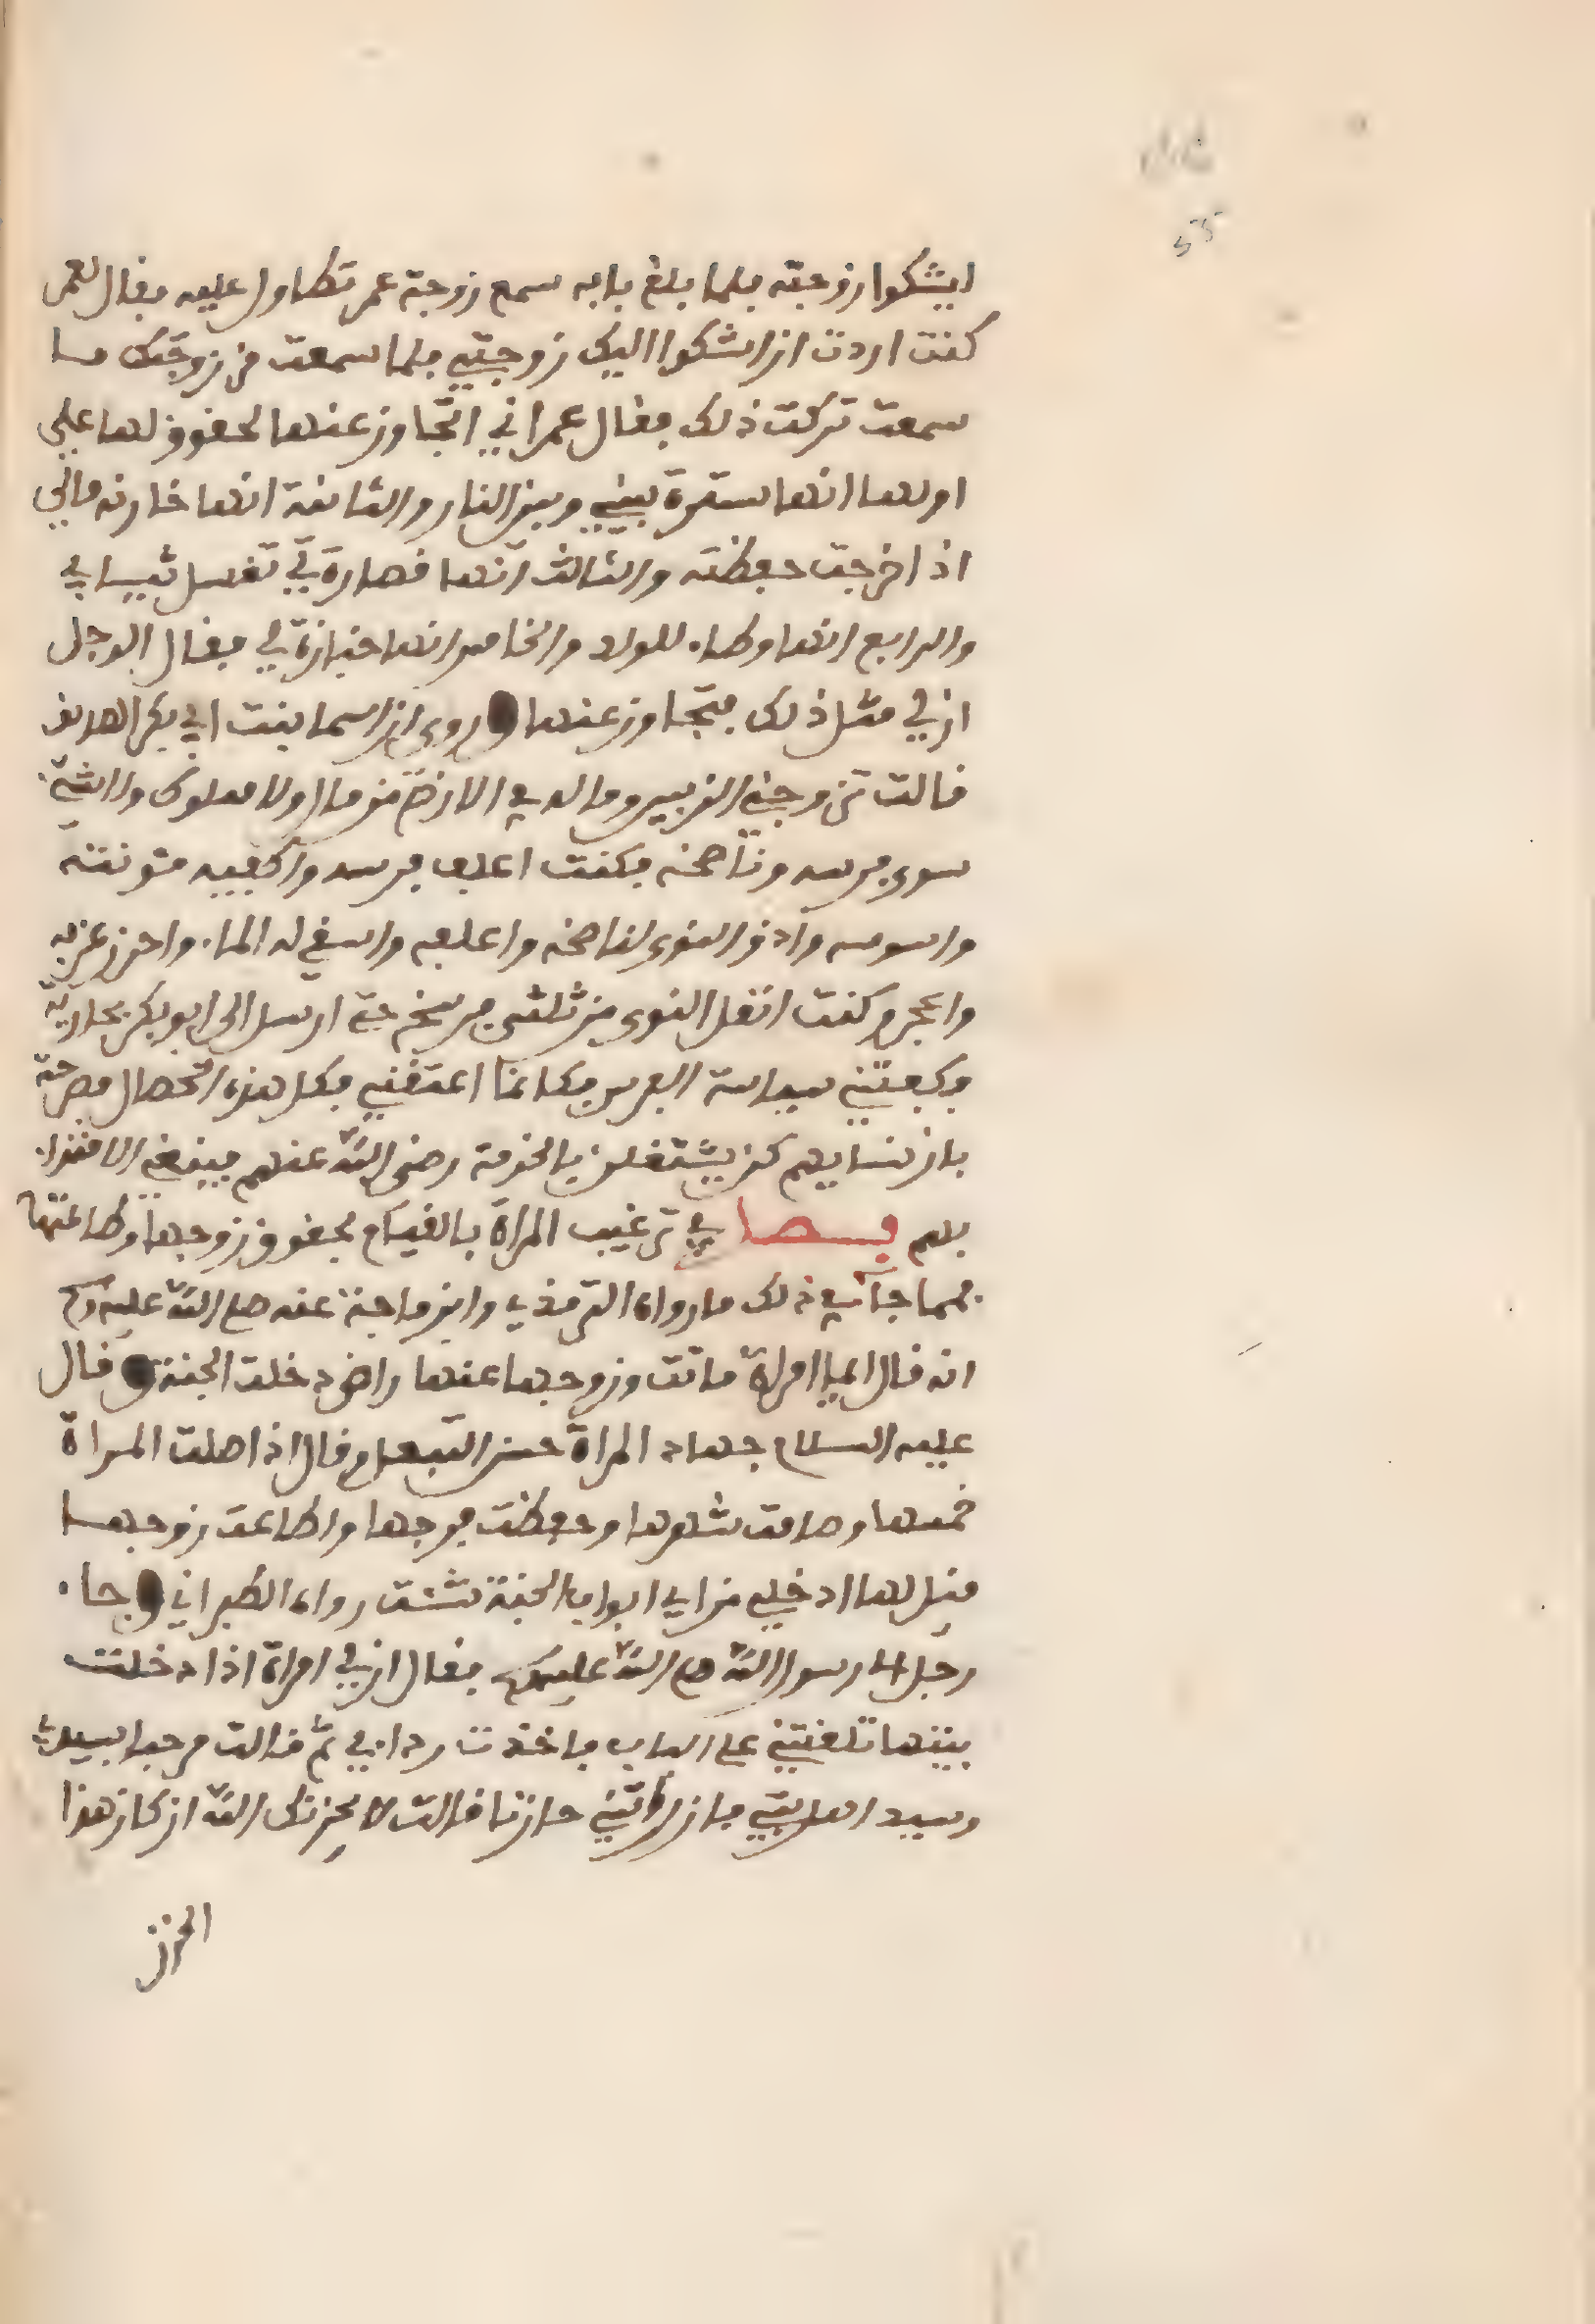 ايشكوا زوجته فلما بلغ بابه سمع زوجة عمر تطاول عليه فقال لعمر
كنت اردت ان اشكوا اليك زوجتي فلما سمعت من زوجتك ما
سمعت تركت ذلك فقال عمر اني اتجاوز عنها لحقوق لها علي
اولها انها سترة بيني وبين النار والثانية انها خازنه مالي
اذا خرجت حفظته والثالث انها قصارة لي تغسل ثيابي
والرابع انها وطاء للولد والخامس انها خبازة لي فقال الرجل
ان لي مثل ذلك فتجاوز عنها وروي ان اسما بنت ابي بكر الصديق
قالت تزوجني الزبير وما له في الارض من مال ولا مملوك ولا شيء
سوى فرسه وناضحه فكنت اعلف فرسه واكفيه مئونته
واسوسه وادق النوى لناضحه واعلفه واسقي له الماء واحرز غربه
واعجن وكنت انقل النوى من ثلثي فرسخ حتى ارسل الي ابو بكر بجارية
فكفتني سياسة الفرس فكانما اعتقني فكل هذه الخصال مصرحة
بان نسايهم كن يشتغلن بالخدمة رضي الله عنهم فينبغي الاقتداء
بهم فصل في ترغيب المراة بالقيام بحقوق زوجها وطاعتها
فمما جآ في ذلك ما رواه الترمذي وابن ماجة عنه صلى الله عليه وسلم
انه قال ايما امراة ماتت وزوجها عنها راض دخلت الجنة وقال
عليه السلام جهاد المراة حسن التبعل وقال اذا صلت المراة
خمسها وصامت شهرها وحفظت فرجها واطاعت زوجها
قيل لها ادخلي من اي ابواب الجنة شئت رواه الطبراني وجاء
رجل الى رسول الله صلى الله عليه وسلم فقال ان لي امراة اذا دخلت
بيتها تلقتني على الباب فاخذت ردايي ثم قالت مرحبا بسيدي
وسيد اهل بيتي فان راتني حازنا قالت لا يحزنك الله ان كان هذا
الحزن